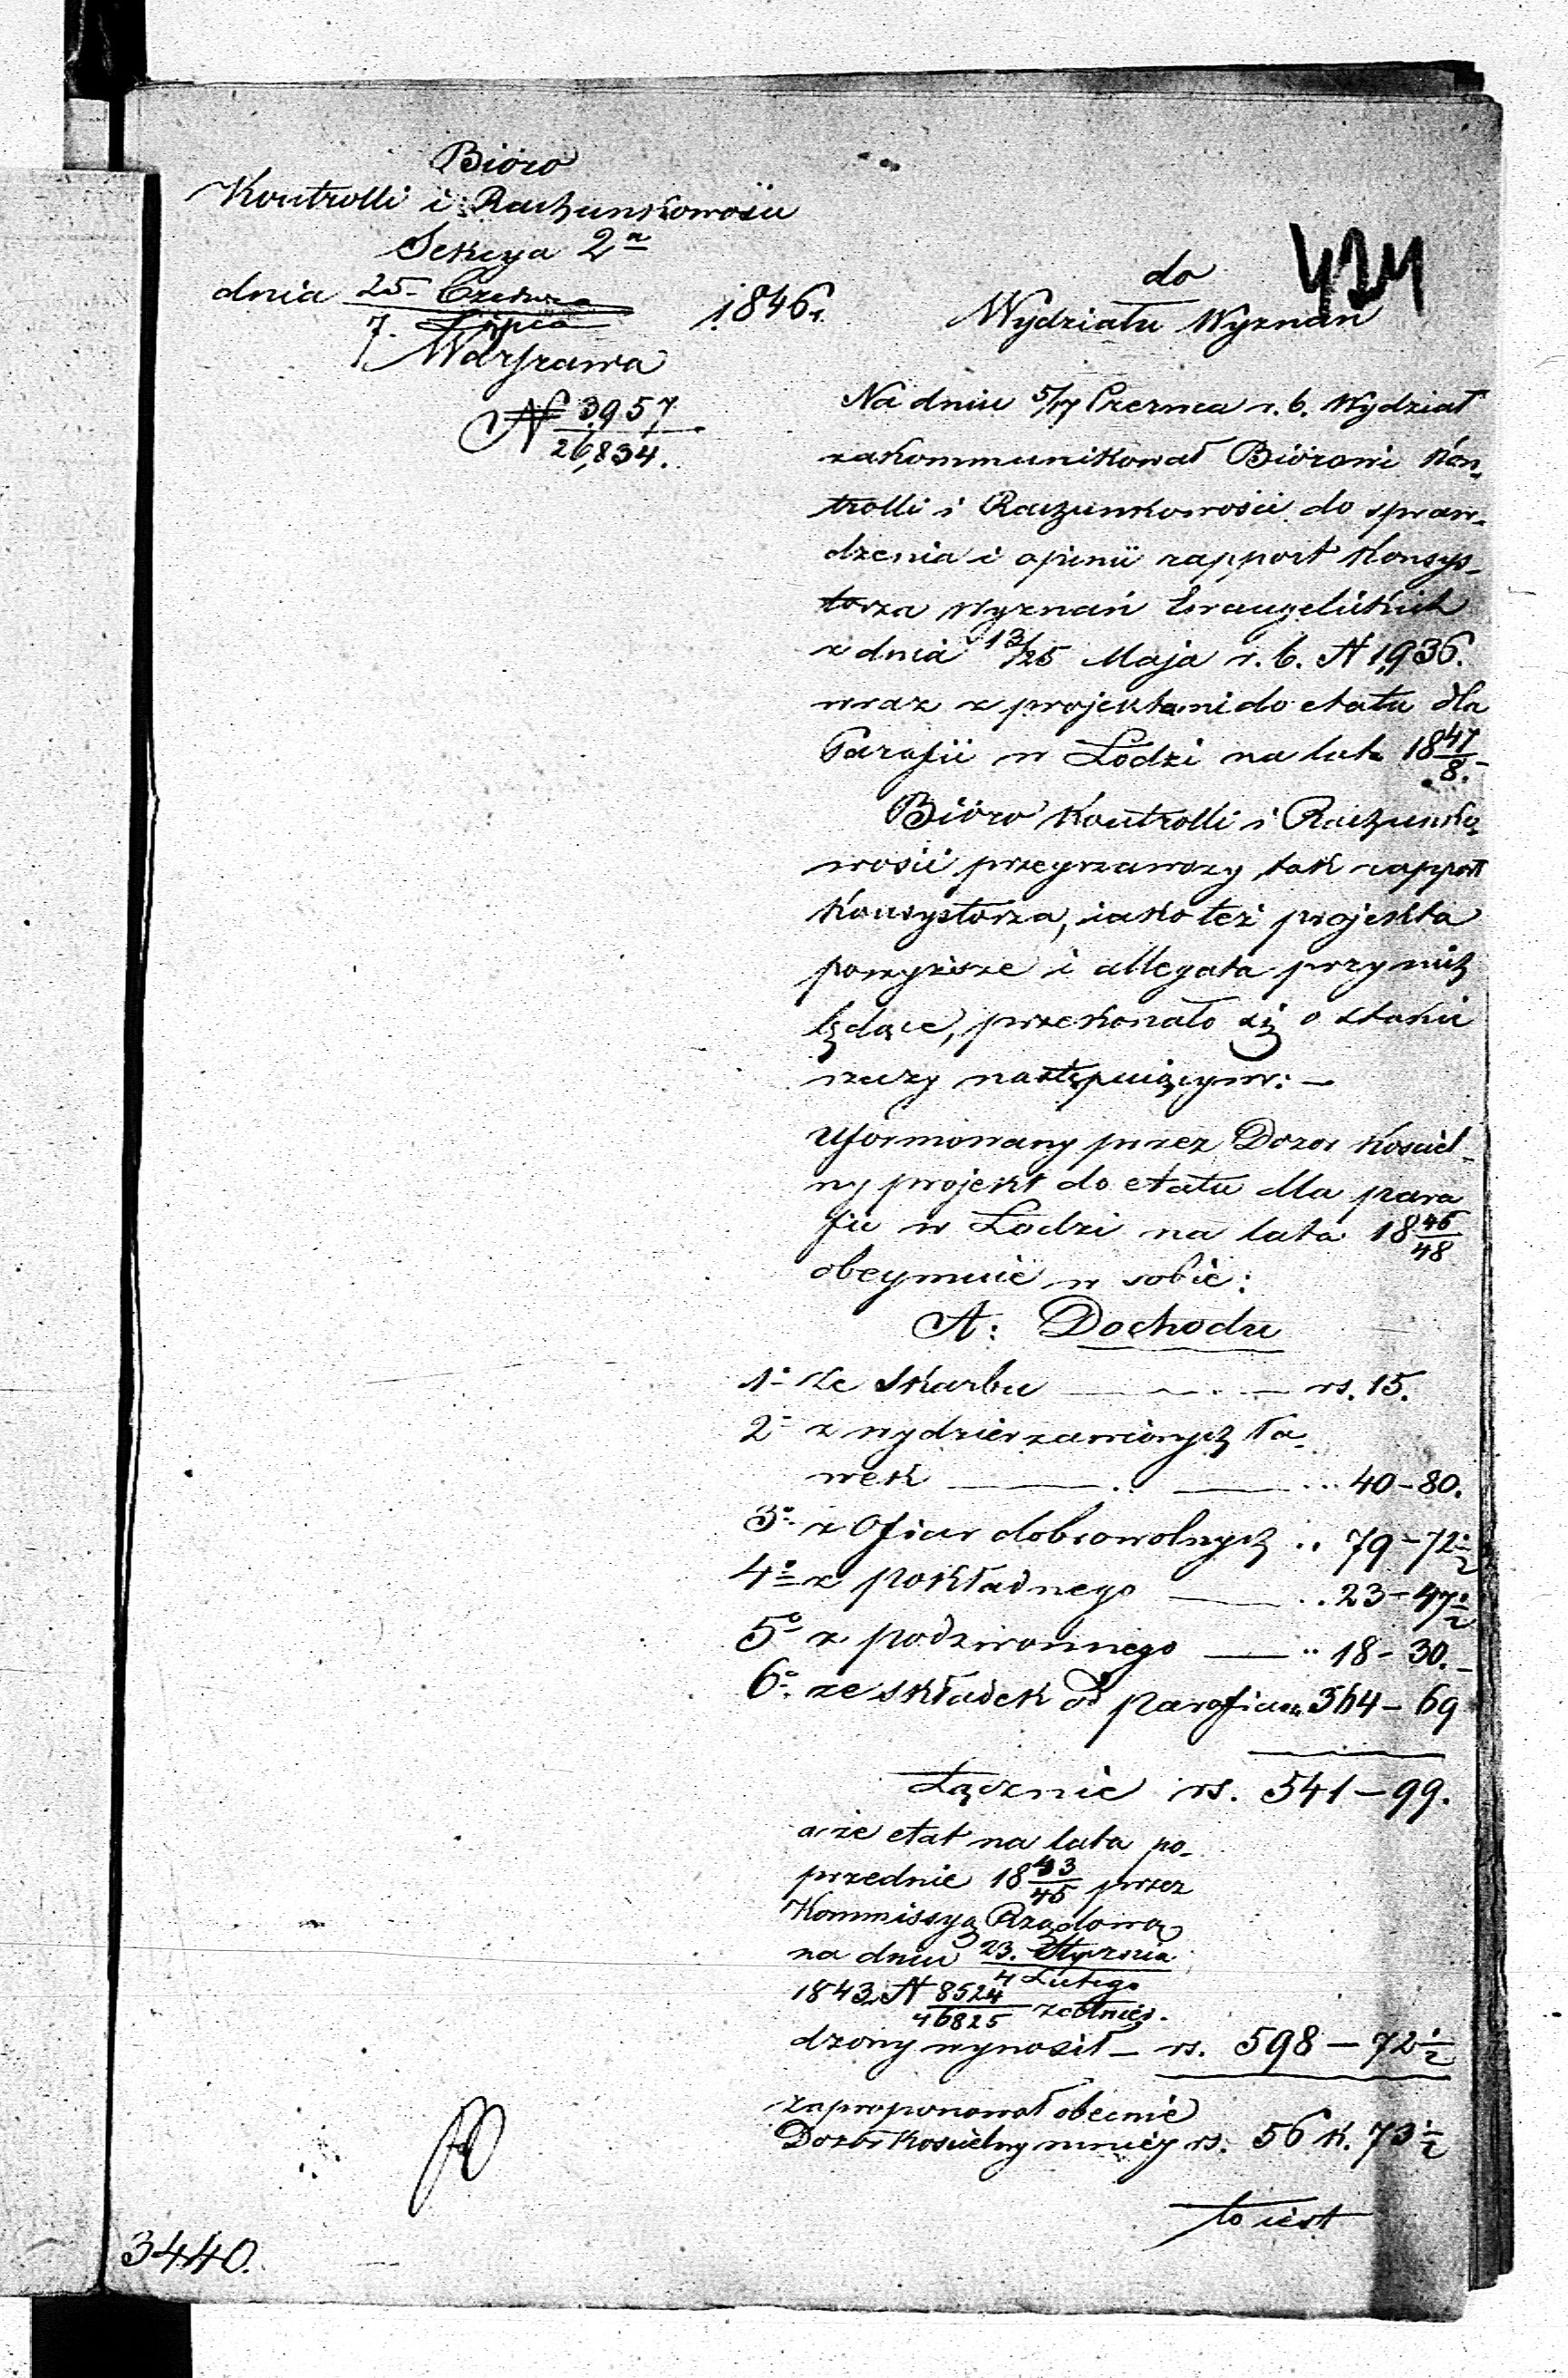 Bióro
Kontrolli i Rachunkowości
Sekcya 2a
dnia 25 Czerwca / 7. Lipca 1846 r.
Warszawa
N 3957 / 26,834.
421
do
Wydziału Wyznań
Na dniu 5/17 Czerwca r. b. Wydział
zakommunikował Biórowi Kon-
trolli i Rachunkowości do spraw-
dzenia i opinii rapport Konsys-
torza Wyznań Ewangelickich
z dnia 13/25 Maja r. b. N 1,936.
wraz z projektami do etatu dla
Parafii w Łodzi na lata 1847/8.
Bióro Kontrolli i Rachunko
wości przeyrzawszy tak rapport
Konsystorza, iako też projekta
powyższe i allegata przy nich
będące, przekonało się o stanie
rzeczy następuiącym: —
Uformowany przez Dozor Kościel-
ny projekt do etatu dla para
fii w Łodzi na lata 1846/48
obeymuie w sobie:
A: Dochodu
1° ze Skarbu — rs. 15.
2° z wydzierzawionych ła-
wek — 40 - 80.
3° z Ofiar dobrowolnych .. 79 - 72 1/2
4° z pokładnego — .. 23 - 47 1/2
5° z podzwonnego — .. 18 - 30. -
6° ze składek od parafian 364 - 69
Łącznie rs. 541 - 99.
a że etat na lata po-
przednie 1843/45 przez
Kommissyą Rządową
na dniu 23. Stycznia / 4 Lutego
1843 N 8524 / 46825 zatwier-
dzony wynosił - rs. 598 — 72 1/2
zaproponował obecnie
Dozór Kościelny mniey rs. 56 k. 73 1/2
to iest
3440.